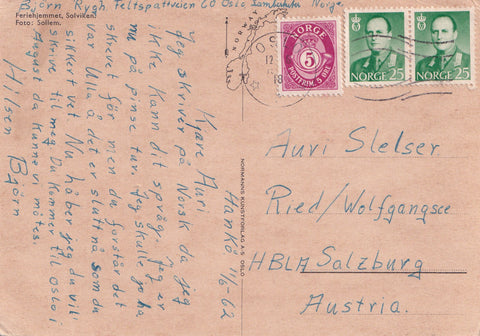 Björn Rygh. Feltspattveien 60 Oslo Norge
Feriehjemmet, Solviken.
Foto: Sollem.
Hankö 11/6-62
Kjære Auri
Jeg skriver på Norsk da jeg
ikke kann dit språg. Jeg er
nu på pinse tur. Jeg skulle ja ha
skrevet før men du forstår det
var Ulla å det er slutt nå som du
sikkert vet Nu håber jeg du vil
skrive til meg. Du kommer til Oslo i
August da kunne vi møtes.
Hilsen Björn
NORMANNS KUNSTFORLAG A/S. OSLO
OSLO
12
18
NORGE
5
POSTFRIM. 5 ØRE
NORGE 25
NORGE 25
Auri Slelser
Ried/Wolfgangsee
HBLA Salzburg
Austria.